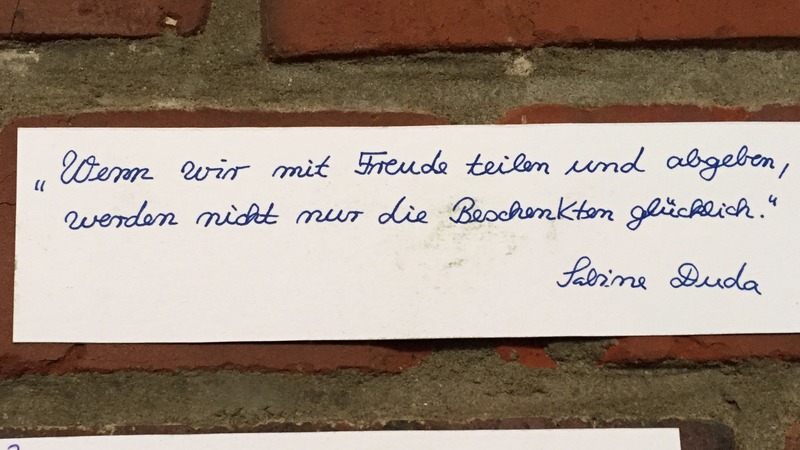 „Wenn wir mit Freude teilen und abgeben,
werden nicht nur die Beschenkten glücklich.“
Sabine Duda